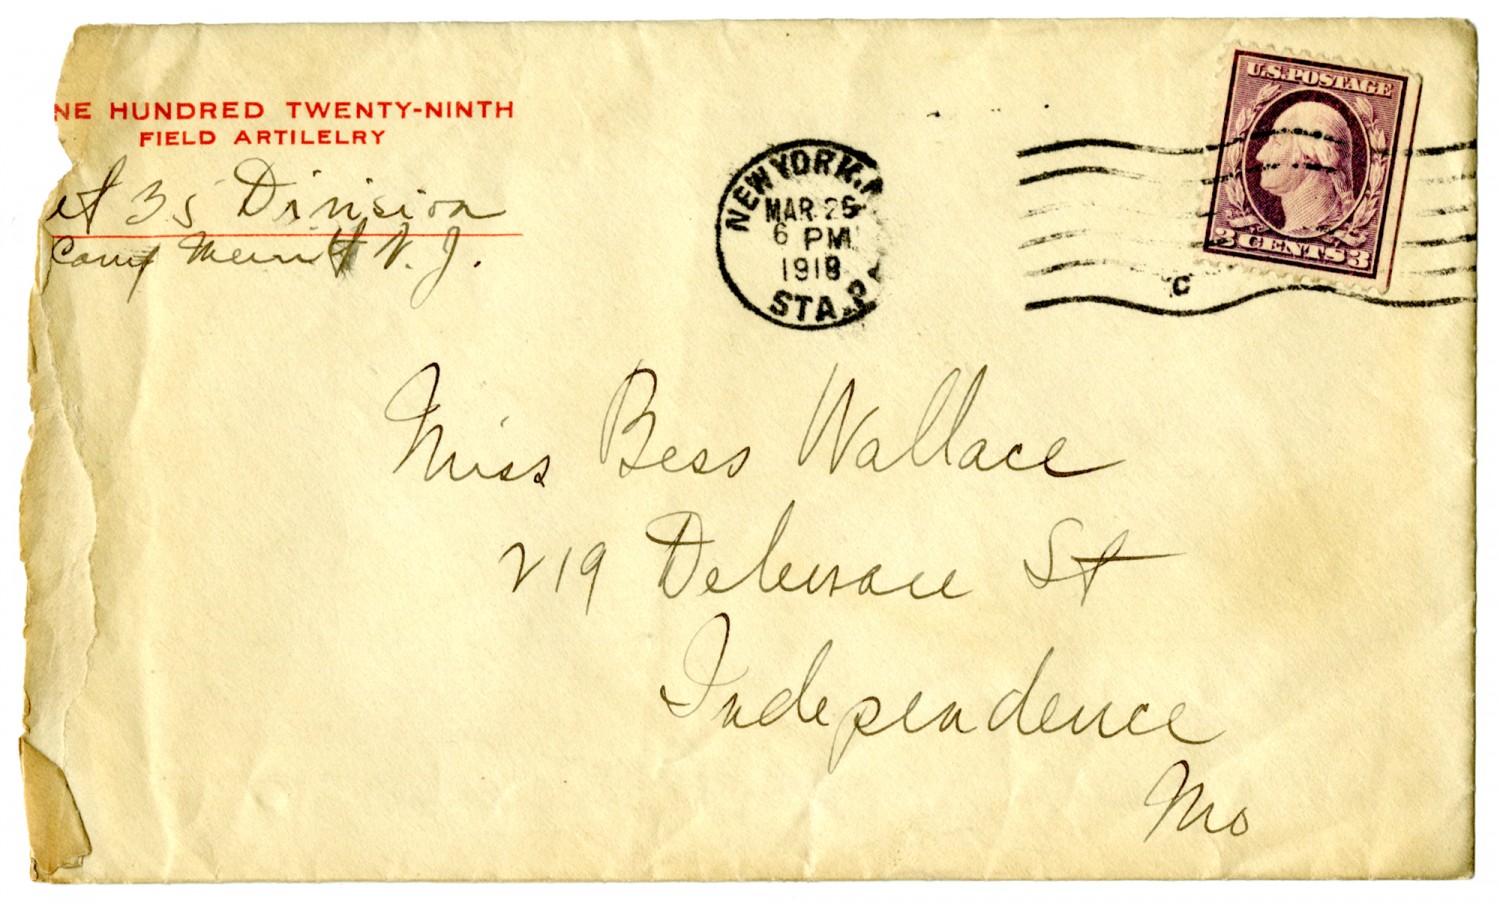 NE HUNDRED TWENTY-NINTH
FIELD ARTILELRY
et 35 Division
Camp Merritt N. J.
NEW YORK, N
MAR 25
6 PM
1918
STA. P
U.S. POSTAGE
3 CENTS 3
C
Miss Bess Wallace
219 Delaware St
Independence
Mo